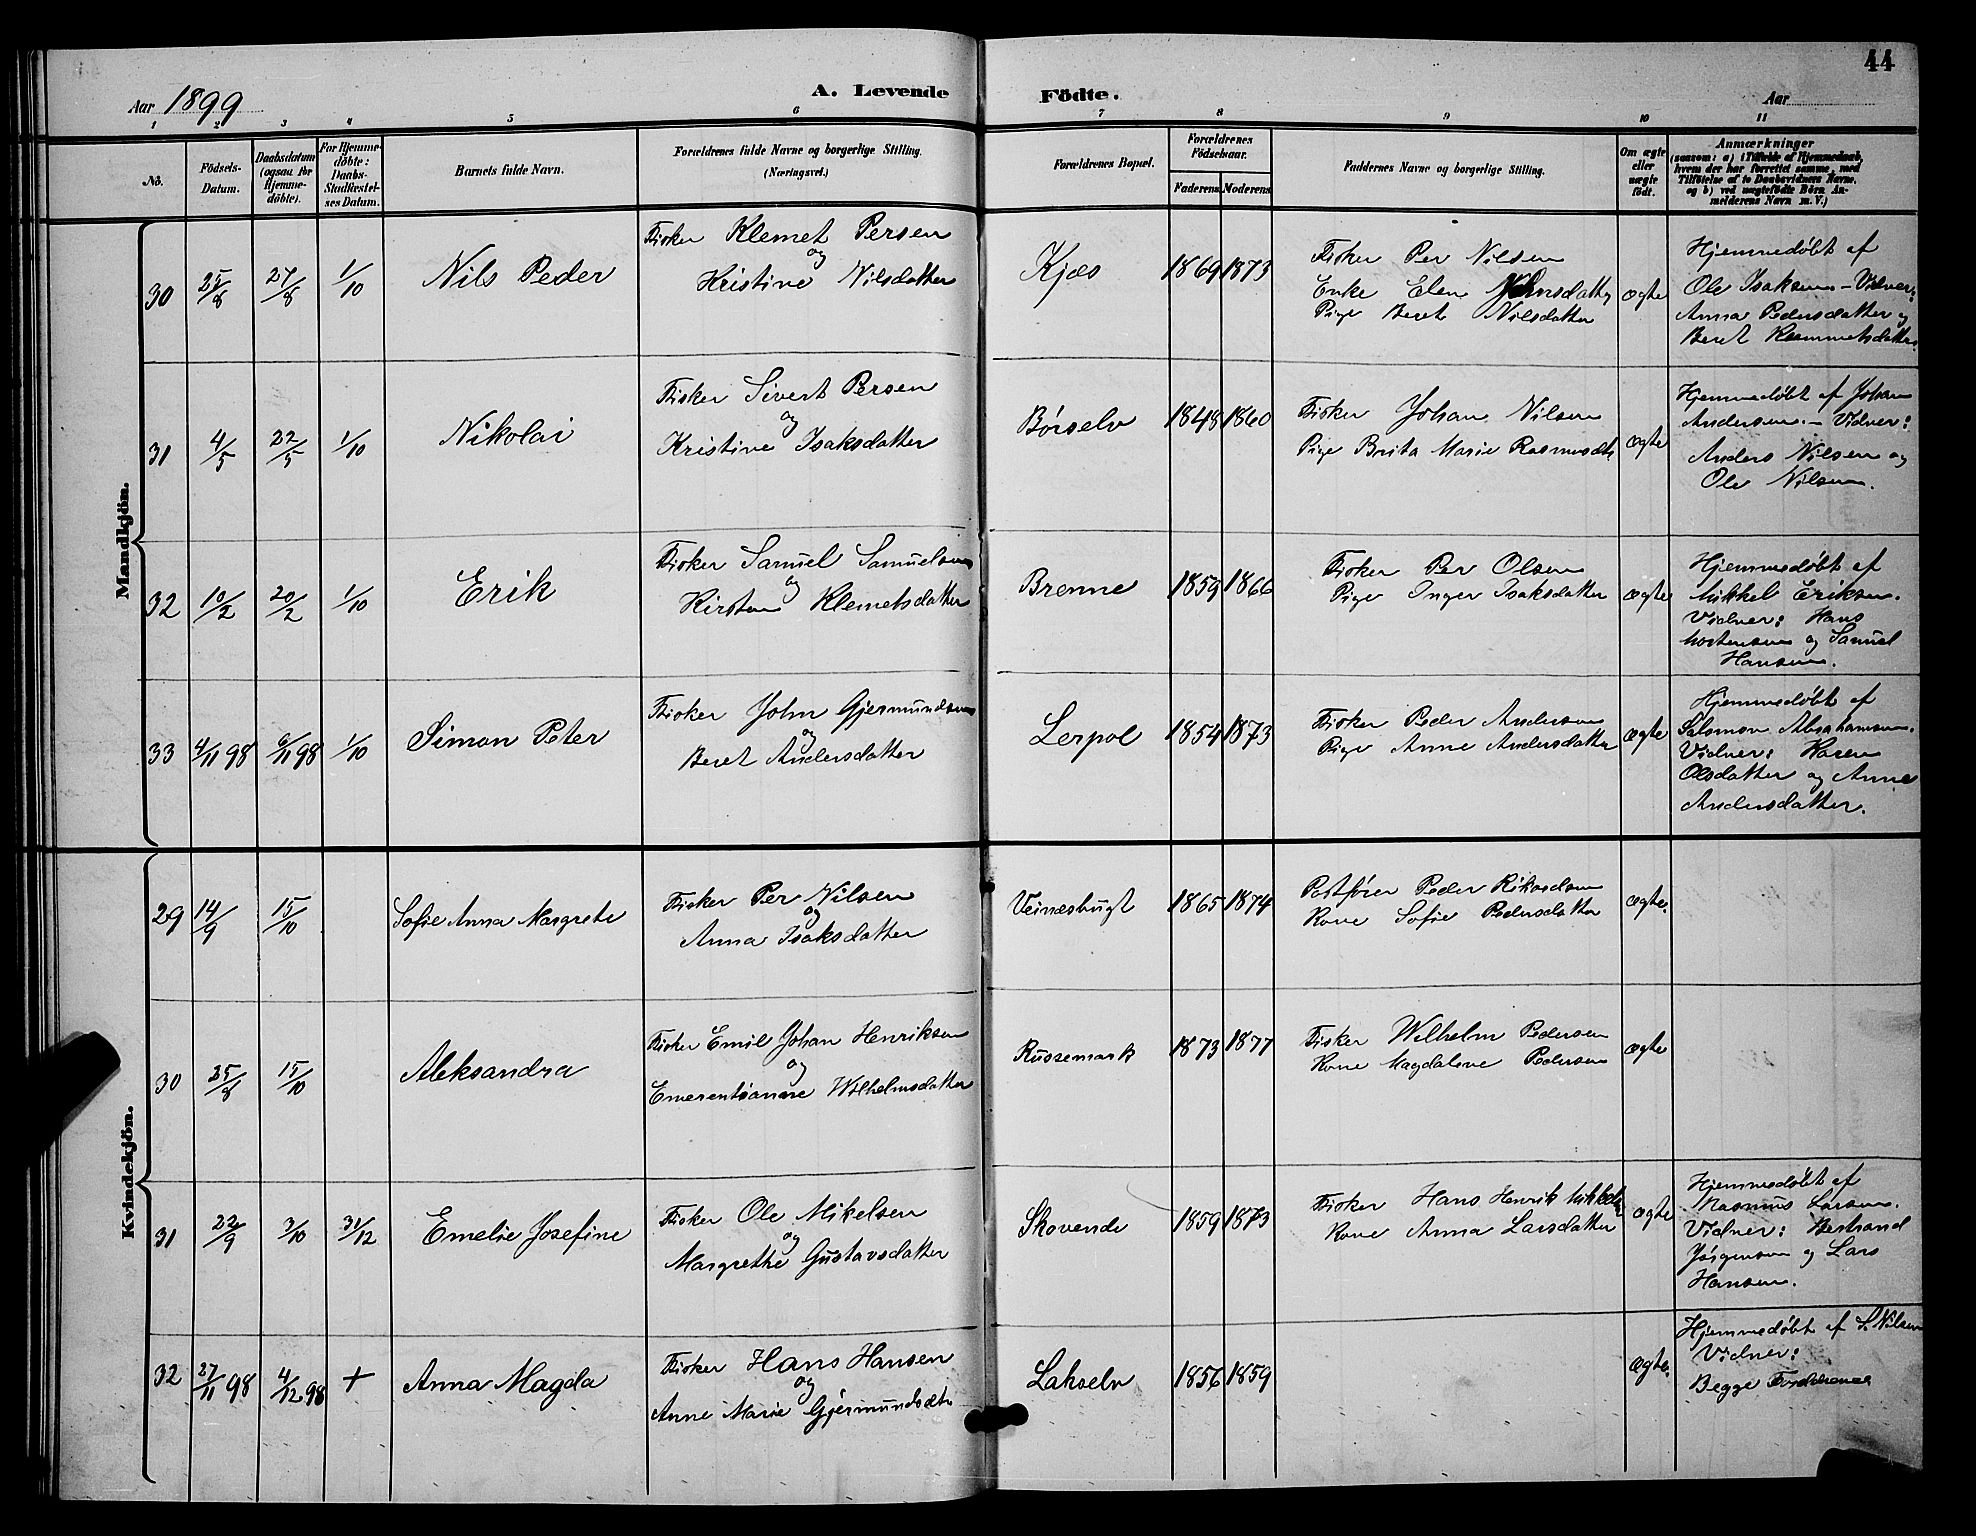 44
Aar 1899
A. Levende Födte.
Aar
1 2 3 4 5 6 7 8 9 10 11
No.
Födsels-
Datum.
Daabsdatum
(ogsaa for
Hjemme-
döbte).
For Hjemme-
döbte:
Daabs-
Stadfæstel-
ses Datum.
Barnets fulde Navn.
Forældrenes fulde Navne og borgerlige Stilling.
(Næringsvei.)
Forældrenes Bopæl.
Forældrenes
Födselsaar.
Faderens. Moderens.
Faddernes Navne og borgerlige Stilling.
Om ægte
eller
uægte
födt.
Anmærkninger
(saasom: a) i Tilfælde af Hjemmedaab,
hvem der har forrettet samme, med
Tilföielse af to Daabsvidners Navne,
og b) ved uægtefödte Börn An-
melderens Navn m. V.)
Mandkjön.
30 25/8 27/8 1/10 Nils Peder
Fisker Klemet Persen
og
Kristine Nilsdatter
Kjæs 1869 1873
Fisker Per Nilsen
Enke Elen
Pige Beret Nilsdatter
ægte
Hjemmedøbt af
Ole Isaksen - Vidner:
Anna Pedersdatter og
Beret Klemmetsdatter.
31 4/5 22/5 1/10 Nikolai
Fisker Sivert Persen
og
Kristine Isaksdatter
Børselv 1848 1860
Fisker Johan Nilsen
Pige Brita Marie Rasmusdt.
ægte
Hjemmedøbt af Johan
Andersen. - Vidner:
Anders Nilsen og
Ole Nilsen.
32 10/2 20/2 1/10 Erik
Fisker Samuel Samuelsen
og
Kirsten Klemetsdatter
Brenne 1859 1866
Fisker Per Olsen
Pige Inger Isaksdatter
ægte
Hjemmedøbt af
Mikkel Eriksen.
Vidner: Hans
Mortensen og Samuel
Hansen.
33 4/11 98 6/11 98 1/10 Simon Peter
Fisker John Gjermundsen
og
Beret Andersdatter
Lerpol 1854 1873
Fisker Peder Andersen
Pige Anne Andersdatter
ægte
Hjemmedøbt af
Salomon Abrahamsen.
Vidner: Karen
Olsdatter og Anne
Andersdatter.
Kvindekjön.
29 14/9 15/10 Sofie Anna Margrete
Fisker Per Nilsen
og
Anna Isaksdatter
Veinesbugt 1865 1874
Postfører Peder Rikardsen
Kone Sofie Pedersdatter
ægte.
30 25/8 15/10 Aleksandra
Fisker Emil Johan Henriksen
og
Emerentsanne Wilhelmsdatter
Russemark 1873 1877
Fisker Wilhelm Pedersen
Kone Magdalene Pedersen
ægte
31 22/9 3/10 31/12 Emelie Josefine
Fisker Ole Mikelsen
og
Margrethe Gustavsdatter
Skovende 1859 1873
Fisker Hans Henrik Mikkelsen
Kone Anna Larsdatter
ægte
Hjemmedøbt af
Rasmus Larsen.
Vidner: Bertrand
Jørgensen og Lars
Hansen.
32 27/11 98 4/12 98 + Anna Magda
Fisker Hans Hansen
og
Anne Marie Gjermundsdtr
Lakselv 1856 1859
ægte.
Hjemmedøbt af S. Nilsen
Vidner:
Begge Forældrene